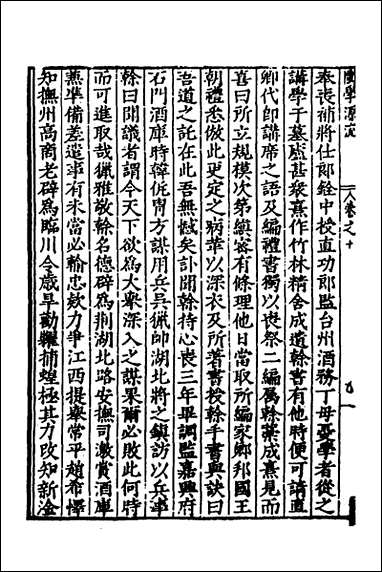 閩學源流 卷之十 九
奉喪補將仕郎銓中授廸功郎監台州酒務丁母憂學者從之
講學于墓廬甚衆熹作竹林精舍成遺幹書有他時便可請直
卿代即講席之語及編禮書獨以喪祭二編屬幹藁成熹見而
喜曰所立規模次第縝密有條理他日當取所編家鄉邦國王
朝禮悉倣此更定之病革以深衣及所著書授幹手書與訣曰
吾道之託在此吾無憾矣訃聞幹持心喪三年畢調監嘉興府
石門酒庫時韓侂冑方謀用兵吳獵帥湖北將之鎮訪以兵事
幹曰聞議者謂今天下欲爲大舉深入之謀果爾必敗此何時
而可進取哉獵雅敬幹名德辟爲荆湖北路安撫司激賞酒庫
兼準備差遣事有未當必輸忠效力爭江西提舉常平趙希懌
知撫州高商老辟爲臨川令歲旱勸糶捕蝗極其力改知新淦